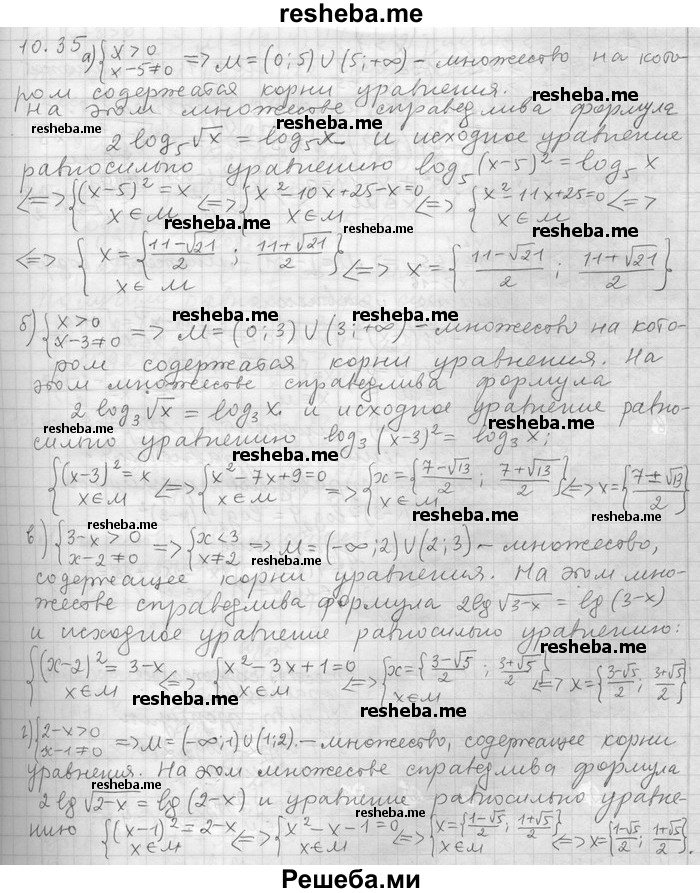 resheba.me
10.35 а) {x>0 x-5≠0 => M = (0;5) ∪ (5;+∞) – множество на кото-
ром содержатся корни уравнения.
resheba.me
На этом множестве справедлива формула
resheba.me
2 log₅ √x = log₅ x и исходное уравнение
resheba.me
равносильно уравнению log₅ (x-5)² = log₅ x
<=> {(x-5)² = x x∈M <=> {x²-10x+25-x=0 x∈M <=> {x²-11x+25=0 x∈M <=>
resheba.me
resheba.me
<=> {x = {(11-√21)/2 ; (11+√21)/2} x∈M <=> x = {(11-√21)/2 ; (11+√21)/2}
resheba.me resheba.me
б) {x>0 x-3≠0 => M = (0;3) ∪ (3;+∞) – множество на кото-
ром содержатся корни уравнения. На
resheba.me
этом множестве справедлива формула
2 log₃ √x = log₃ x и исходное уравнение равно-
resheba.me resheba.me
сильно уравнению log₃ (x-3)² = log₃ x;
{(x-3)² = x x∈M <=> {x²-7x+9=0 x∈M => {x = {(7-√13)/2 ; (7+√13)/2} x∈M <=> x = {(7±√13)/2}
resheba.me
resheba.me
в) {3-x>0 x-2≠0 => {x<3 x≠2 => M = (-∞;2) ∪ (2;3) – множество,
resheba.me
содержащее корни уравнения. На этом мно-
resheba.me
жестве справедлива формула 2lg √3-x = lg (3-x)
и исходное уравнение равносильно уравнению:
resheba.me
{(x-2)² = 3-x x∈M <=> {x²-3x+1=0 x∈M <=> {x = {(3-√5)/2 ; (3+√5)/2} x∈M <=> x = {(3-√5)/2 ; (3+√5)/2}
resheba.me
resheba.me
г) {2-x>0 x-1≠0 => M = (-∞;1) ∪ (1;2) – множество, содержащее корни
уравнения. На этом множестве справедлива формула
resheba.me
2 lg √2-x = lg (2-x) и уравнение равносильно уравне-
resheba.me
нию {(x-1)² = 2-x x∈M <=> {x²-x-1=0 x∈M <=> {x = {(1-√5)/2 ; (1+√5)/2} x∈M <=> x = {(1-√5)/2 ; (1+√5)/2}.
resheba.me
Решеба.ми